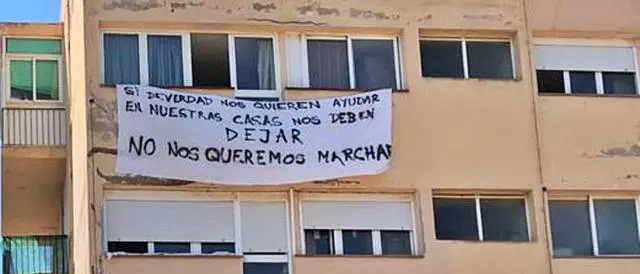 SI DEVERDAD NOS QUIEREN AYUDAR
EN NUESTRAS CASAS NOS DEBEN
DEJAR
NO NOS QUEREMOS MARCHAR